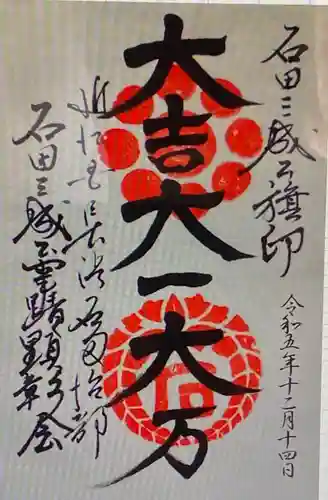 石田三成公旗印
令和五年十二月十四日
大吉大一大万
近江国長浜石田治部
石田三成公事蹟顕彰会